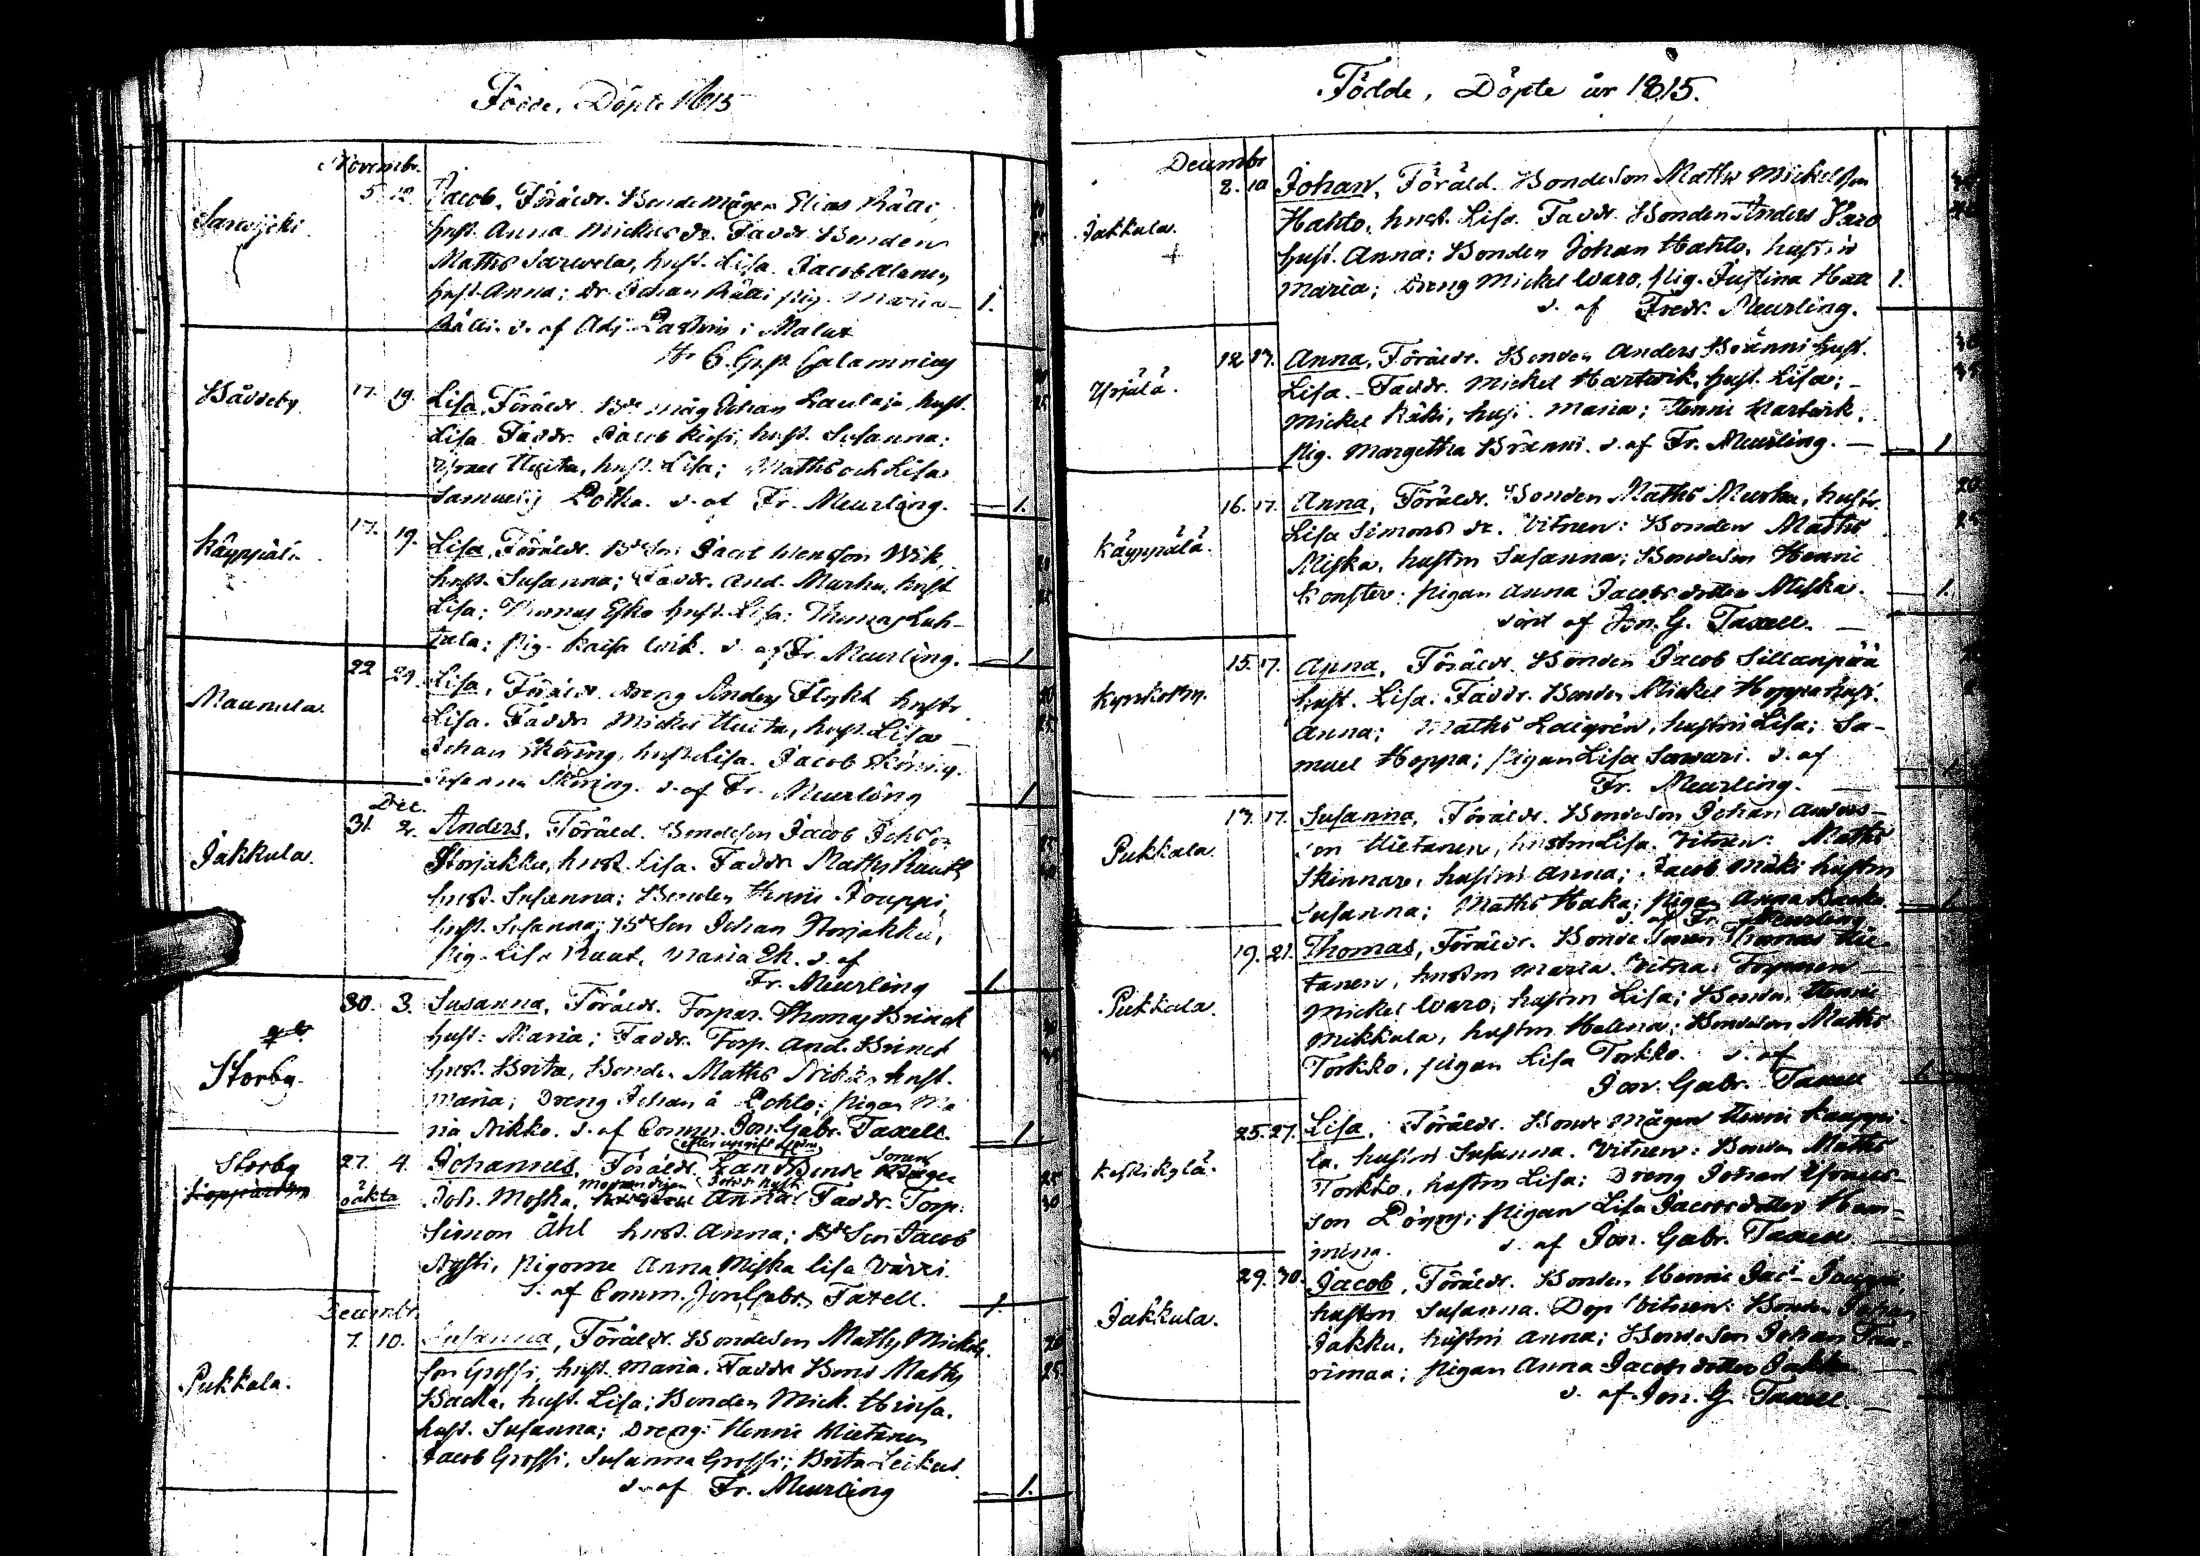 Födde, Döpte 1815
Novembr.
5. 12. Jacob, Föräldr. Bondemågen Elias Rätti,
Sarvijoki hust. Anna Mickelsdr. Faddr. Bonden
Matths Sarvela, hust. Lisa. Jacob
hust. Anna; Dr. Johan Rätti pig. Maria 1.
Rätti. d. af Adj. Pastorn i Malax
Hr C. Calamnius
Båddeby 17. 19. Lisa, Föräldr. Bde måg Johan Laulaja, hust.
Lisa Faddr. Jacob hust. Susanna;
Israel Huita, hust. Lisa; Maths och Lisa
Samuels Potka. d. af Fr. Meurling. 1.
Käyppälä 17. 19. Lisa, Föräldr. Bde Son Jacob Wik,
hust. Susanna; Faddr. And. Marku, hust
Lisa; Thomas Esko hust. Lisa; Thomas Luh-
tala; pig. Kaisa Wik. d. af Fr. Meurling. 1
Maunula. 22 29. Lisa, Föräldr. Dreng Anders Flykt hustr.
Lisa. Faddr. Mickel Huita, hust. Lisa
Johan Köning, hust Lisa. Jacob Köning.
Susanna Köning. d. af Fr. Meurling 1
Dec.
Jakkula. 31. 2. Anders, Föräld. Bondeson Jacob Johsson
Storjakku, hust. Lisa. Faddr Maths Rauta
hust. Susanna; Bonden Henric Jouppi,
hust. Susanna; Bde Son Johan Storjakku,
pig. Lisa Raut, Maria Ek. d. af
Fr. Meurling 1.
Storby. 30. 3. Susanna, Föräldr. Torpar. Thomas Brinck
hust: Maria; Faddr. Torp. And. Brinck
hust. Brita, Bonden Maths Nikko hust.
Maria; Dreng Johan å Pohto; pigan Ma
ria Nikko. d. af Comm. Jon. Gabr. Taxell. 1
efter uppgift
Storby 27. 4. Johannes, Föräldr. Landbonde Sonen
oäkta Joh. Moska, Anna Faddr. Torp.
Simon Åhl hust. Anna; Bde Son Jacob
Nysti, pigorne Anna Miska Lisa Värri.
d. af Comm. Jon Gabr. Taxell. 1.
Decembr.
7. 10. Susanna, Föräldr. Bondeson Maths Mickels-
Pukkala. son Grossi, hust. Maria. Faddr Bond Maths
Backa, hust. Lisa; Bonden Mick. Hirsa,
hust. Susanna; Dreng: Henric Hietanen
Jacob Grossi, Susanna Grossi; Brita Leikus.
d. af Fr. Meurling 1.
Födde, Döpte år 1815.
Decembr
2. 10 Johan, Föräld. Bondeson Maths Mickelsson
Jakkula. Hahto, hust. Lisa. Faddr. Bonden Anders Varo
hust. Anna; Bonden Johan Hahto, hustin
Maria; Dreng Mickel Waro, pig. Justina 1.
d. af Fredr. Meurling.
Yrjälä. 12 17. Anna, Föräldr. Bonden Anders Bränni hust.
Lisa. Faddr. Mickel Hartwik, hust. Lisa;
Mickel Räki, hust. Maria; Henric Hartwik.
pig. Margetha Bränni. d. af Fr. Meurling. 1
Käyppälä. 16. 17. Anna, Föräldr. Bonden Maths Marku, hustr.
Lisa Simons dr. Vitnen: Bonden Maths
Miska, hustrn Susanna; Bondeson Henric
Konster; pigan Anna Jacobsdotter Miska. 1.
dört af Jon. G. Taxell.
Kyrkoby. 15. 17. Anna, Föräldr. Bonden Jacob Sillanpää
hust. Lisa. Faddr. Bonden Mickel Hoppa hust.
Anna; Maths Laigren, hustrn Lisa; Sa-
muel Hoppa; pigan Lisa Sawari. d. af
Fr. Meurling.
Pukkala. 17. 17. Susanna, Föräldr. Bondeson Johan Anders-
son Hietanen, hustrn Lisa. Vitnen: Maths
Skinnar, hustrn Anna; Jacob Mäki hustrn
Susanna; Maths Haka; pigan Anna Backa 1
d. af Fr. Meurling
Pukkala. 19. 21. Thomas, Föräldr. Bonde Sonen Thomas Hie-
tanen, hustrn Maria. Vitna: Torparen
Mickel Waro, hustrn Lisa; Bonden Henric
Mikkala, hustrn Helena; Bondeson Maths
Torkko, pigan Lisa Torkko. d. af
Jon. Gabr. Taxell 1.
Keskikylä. 25. 27. Lisa, Föräldr. Bonde Mågen Henric Kauppi-
la, hustrn Susanna. Vitnen: Bonden Maths
Torkko, hustrn Lisa; Dreng Johan Ysraels-
son Pöyry; pigan Lisa Jacobsdotter Ham-
mina. d. af Jon. Gabr. Taxell
Jakkula. 29. 30. Jacob, Föräldr. Bonden Henric Jac: Jouppi,
hustrn Susanna. Dop Vitnen: Bonden Johan
Jakku, hustrn Anna; Bondeson Johan
rimaa; pigan Anna Jacobsdotter Jakku
d. af Jon. G. Taxell.